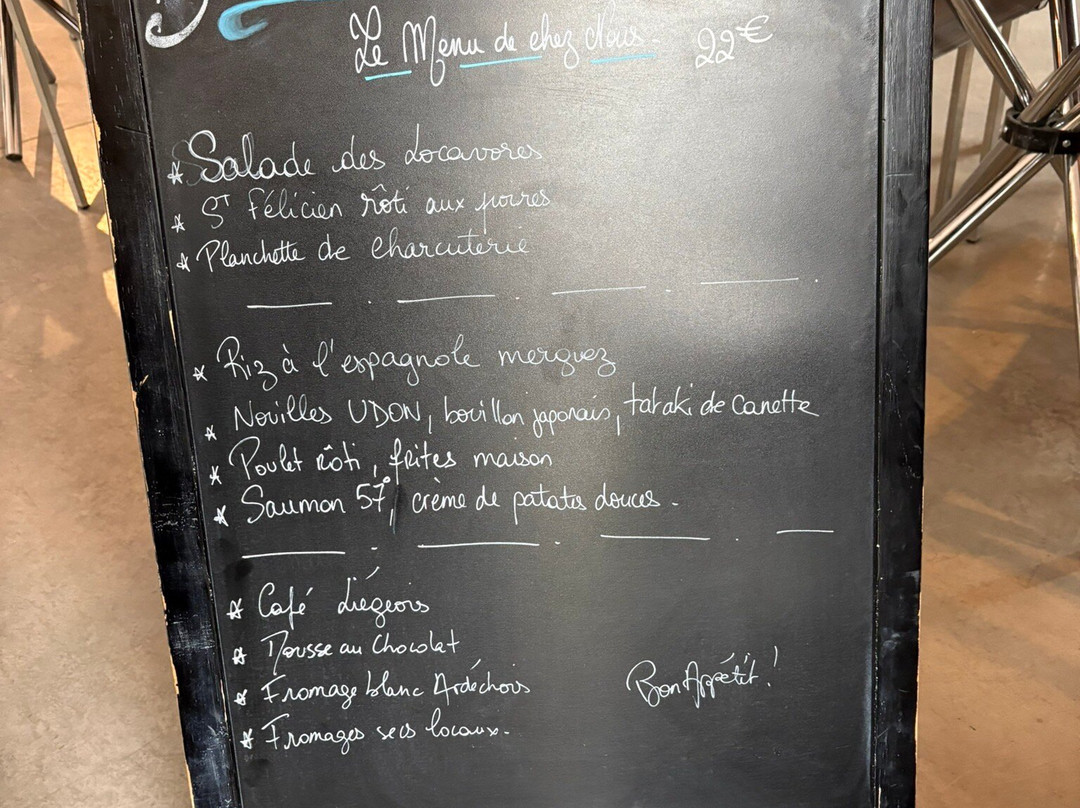 Le Menu de chez Nous. 22€
Salade des Locavores
ST Félicien rôti aux poires
Planchette de charcuterie
Riz à l'espagnole merguez
Nouilles UDON, bouillon japonais, tataki de Canette
Poulet rôti, frites maison
Saumon 57°, crème de patates douces.
Café Liégeois
Mousse au Chocolat
Fromage blanc Ardéchois
Bon Appétit!
Fromages secs locaux.